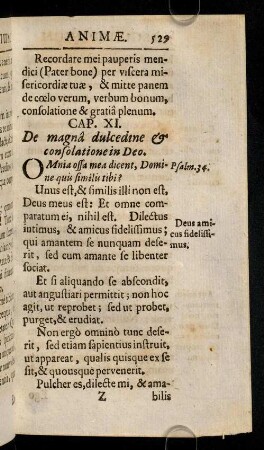 ANIMÆ. 529
Recordare mei pauperis men-
dici (Pater bone) per viscera mi-
sericordiæ tuæ, & mitte panem
de cœlo verum, verbum bonum,
consolatione & gratiâ plenum.
CAP. XI.
De magnâ dulcedine &
consolatione in Deo.
OMnia ossa mea dicent, Domi-
ne quis similis tibi?
Psalm.34.
Unus est, & similis illi non est,
Deus meus est: Et omne com-
paratum ei, nihil est. Dilectus
intimus, & amicus fidelissimus;
qui amantem se nunquam dese-
rit, sed cum amante se libenter
sociat.
Deus ami-
cus fidelissi-
mus.
Et si aliquando se abscondit,
aut angustiari permittit; non hoc
agit, ut reprobet; sed ut probet,
purget, & erudiat.
Non ergò omninò tunc dese-
rit, sed etiam sapientius instruit,
ut appareat, qualis quisque ex se
sit, & quousque pervenerit.
Pulcher es, dilecte mi, & ama-
Z bilis